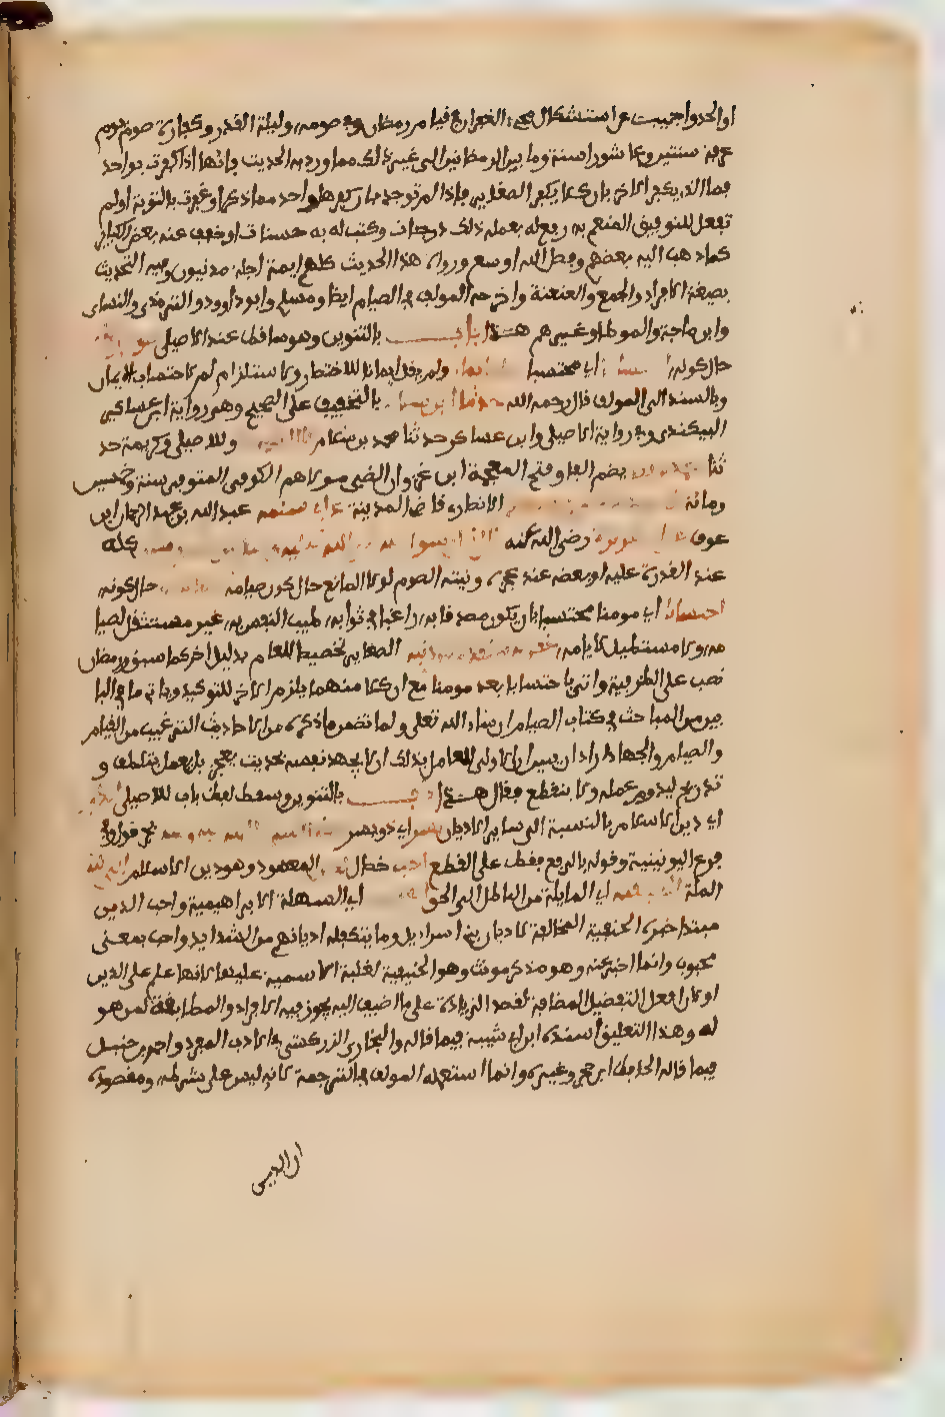 او الحد واجيب عن استشكال مجيء الغفران في قيام رمضان وفي صومه وليلة القدر وكفارة صوم يوم
عرفة سنتين وعاشورا سنة وما بين الرمظانين الى غير ذلك مما ورد به الحديث بانها اذا كفرت بواحد
فما الذي يكفر الاخر بان كلا يكفر الصغاير فاذا لم توجد بان كفرها واحد مما ذكر او غفرت بالتوبة او لم
تفعل للتوفيق المنعم به رفع له بعمله ذلك درجات وكتب له به حسنات او خفف عنه بعض الكباير
كما ذهب اليه بعضهم وفضل الله اوسع ورواة هذا الحديث كلهم ايمة اجلة مدنيون وفيه التحديث
بصيغة الافراد والجمع والعنعنة واخرجه المولف في الصيام ايظا ومسلم وابو داوود والترمذي والنساي
وابن ماجة والموطا وغيرهم هــذا باب بالتنوين وهو ساقط عند الاصيلي
حال كونه اي محتسبا ولم يقل ايمانا للاختطار ولاستلزام لمر الاحتساب الايمان
وبالسند الى المولف قال رحمه الله حدثنا ابن سلام بالتخفيف على الصحيح وهي رواية ابن عساكر
البيكندي وفي رواية الاصيلي وابن عساكر حدثنا محمد بن سلام وللاصيلي وكريمة حد
ثنا بضم الفا وفتح المعجمة ابن غزوان الضبي مولاهم الكوفي المتوفى سنة وخمس
ومائة الانطارى قاضي المدينة عن ابي سلمه عبد الله بن عبد الرحمان ابن
عوف عن ابي هريرة رضي الله عنه قال قال رسول الله صلى الله عليه وسلم كله
عند القدرة عليه او بعضه عند عجزه ونيته الصوم لولا المانع حال كون صيامه حال كونه
احتسابا اي مومنا محتسبا بان يكون مصدقا به راغبا في ثوابه طيب النفس به غير مستثقل لصيا
مه ولا مستطيل لايامه الصغاير تخصيطا للعام بدليل اخر كما سبق ورمضان
نصب على الظرفية واتى باحتسابا بعد مومنا مع ان كلا منهما يلزم الاخر للتوكيد وياتي ما في البا
بين من المباحث في كتاب الصيام ان شاء الله تعلى ولما تضمن ماذكره من الاحاديث الترغيب من القيام
والصيام والجهاد اراد ان يبين ان الاولى للعامل بذلك ان لا يجهد نفسه بحيث يعجز بل يعمل بتلطف و
تدريج ليدوم عمله ولا ينقطع فقال هــذا باب بالتنوين وسقط لفظ باب للاصيلي
اي دين الاسلام بالنسبة الى ساير الاديان يسر اي ذو يسر
فرع اليونينية وقوله بالرفع فقط على القطع احب خصال المعهود وهو دين الاسلام
الملة اي المايلة من الباطل الى الحق اي السهلة الابراهيمية واحب الدين
مبتدا خبره الحنفية المخالفة لاديان بني اسراءيل وما يتكلفه اديانهم من الشدايد واحب بمعنى
محبوب وانما اخبر عنه وهو مذكر مونث وهو الحنيفية لغلبة الاسمية عليها لانها علم على الدين
او لان افعل التفضيل المضاف لقصد الزيادة على ما اضيف اليه يجوز فيه الافراد والمطابقة لمن هو
له وهذا التعليق اسنده ابن ابي شيبة فيما قاله والبخاري الزركشي في الادب المفرد واحمد بن حنبل
فيما قاله الحافظ ابن حجر وغيره وانما استعمله المولف في الترجمة لانه ليس على شرطه ومقصوده
ان الدين